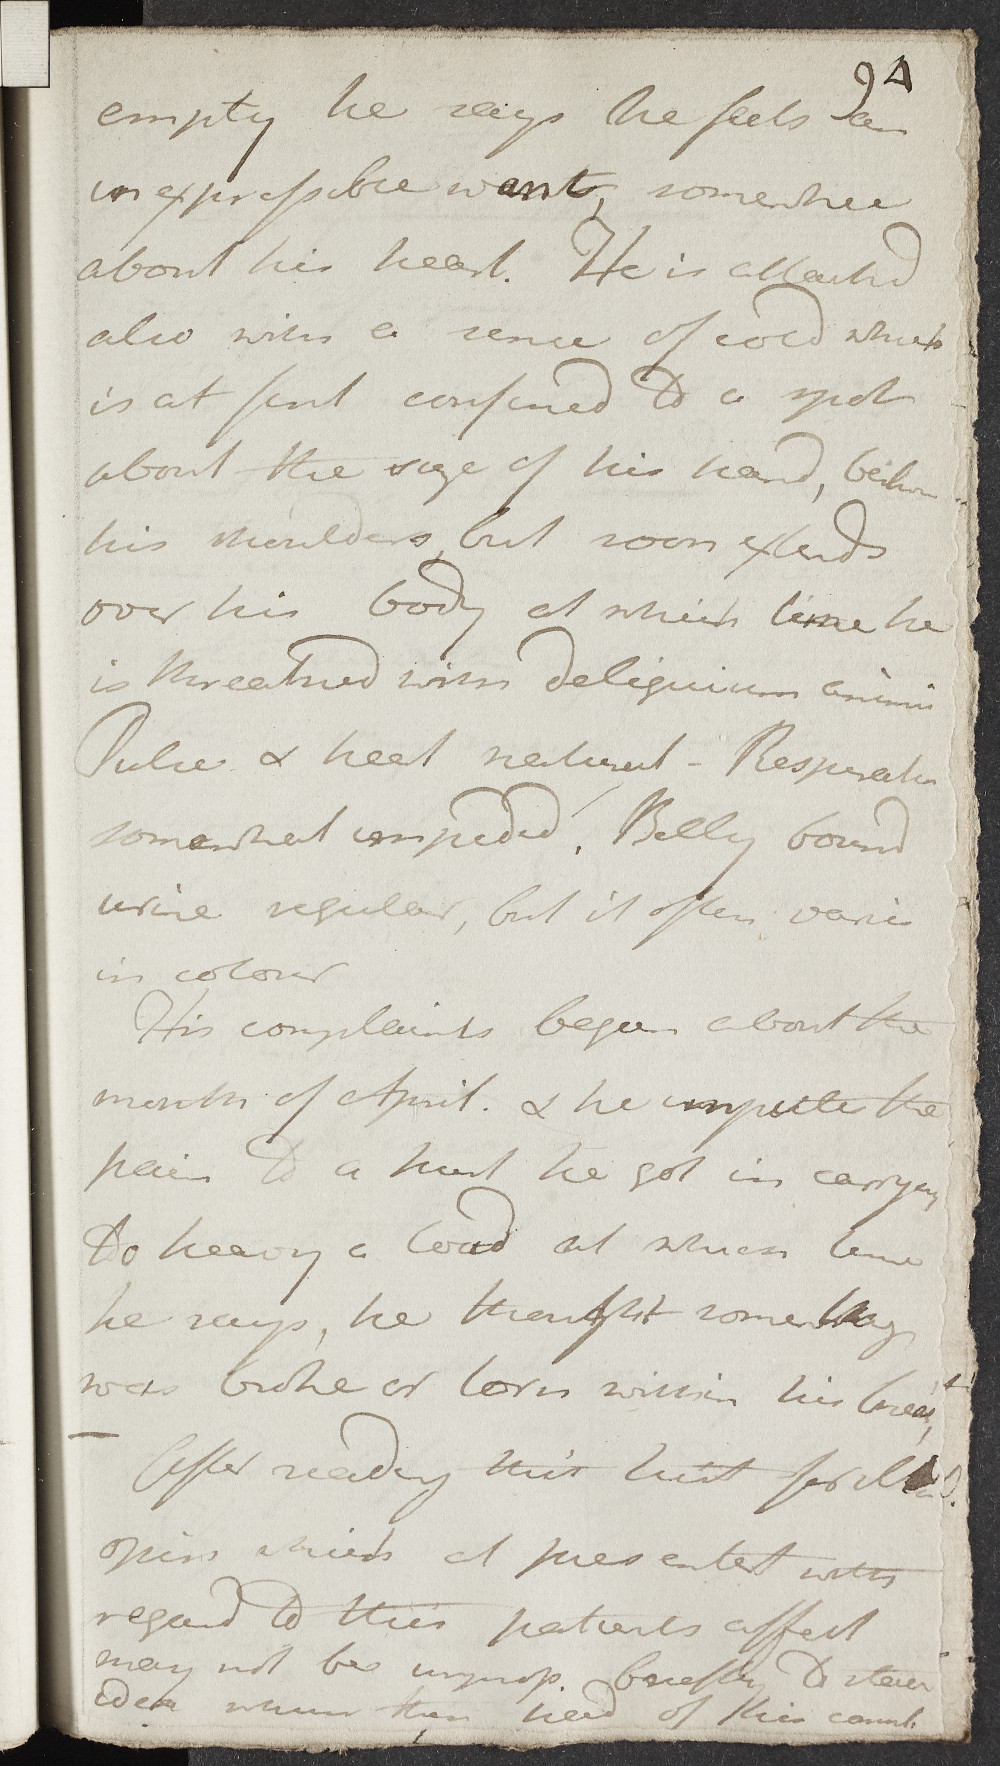 94
empty he says he feels an
inexpressible want, somewhere
about his heart. He is attacked
also with a sence of cold which
is at first confined to a spot
about the size of his hand, betwn
his shoulders, but soon extends
over his body at which time he
is threatned with deliquium animi
Pulse & heat natural - Respiratn
somewhat impeded. Belly bound
urine regular, but it often varies
in colour
His complaints began about the
month of April. & he imputes the
pain to a hurt he got in carrying
to heavy a load at which time
he says, he thought something
was broke or torn within his breast
After reading this hist
opin which at pres entert with
regard to this patients affect
may not be improp. briefly to
idea when then head of this